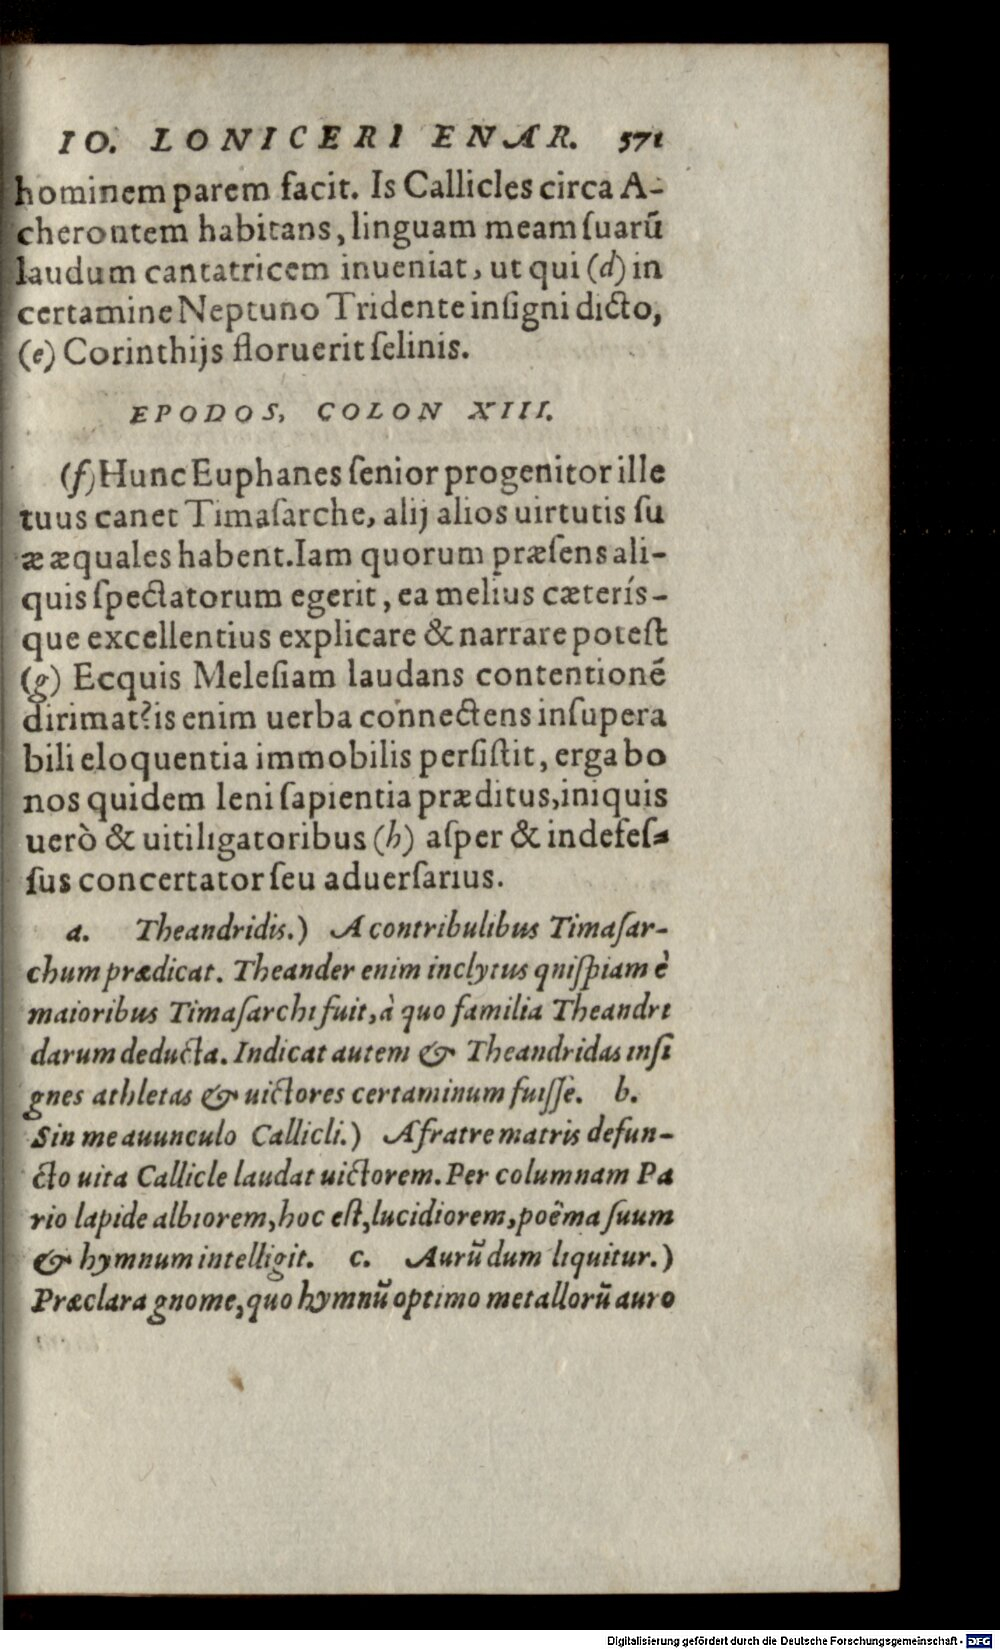 IO. LONICERI ENAR. 571
hominem parem facit. Is Callicles circa A-
cherontem habitans, linguam meam ſuarũ
laudum cantatricem inueniat, ut qui (d) in
certamine Neptuno Tridente inſigni dicto,
(e) Corinthijs floruerit ſelinis.
EPODOS, COLON XIII.
(f) Hunc Euphanes ſenior progenitor ille
tuus canet Timaſarche, alij alios uirtutis ſu
æ æquales habent. Iam quorum præſens ali-
quis ſpectatorum egerit, ea melius cæterís-
que excellentius explicare & narrare poteſt
(g) Ecquis Meleſiam laudans contentionẽ
dirimat? is enim uerba connectens inſupera
bili eloquentia immobilis perſiſtit, erga bo
nos quidem leni ſapientia præditus, iniquis
uerò & uitiligatoribus (h) aſper & indefeſ-
ſus concertator ſeu aduerſarius.
a. Theandridis.) A contribulibus Timaſar-
chum prædicat. Theander enim inclytus quiſpiam è
maioribus Timaſarchi fuit, à quo familia Theandri
darum deducta. Indicat autem & Theandridas inſi
gnes athletas & uictores certaminum fuiſſe. b.
Sin me auunculo Callicli.) A fratre matris defun-
cto uita Callicle laudat uictorem. Per columnam Pa
rio lapide albiorem, hoc eſt, lucidiorem, poêma ſuum
& hymnum intelligit. c. Aurũ dum liquitur.)
Præclara gnome, quo hymnũ optimo metallorũ auro
Digitalisierung gefördert durch die Deutsche Forschungsgemeinschaft - DFG